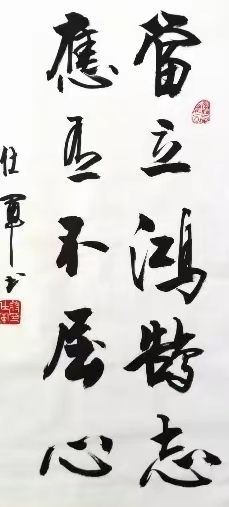 當立鴻鵠志
應有不屈心
仕軍书